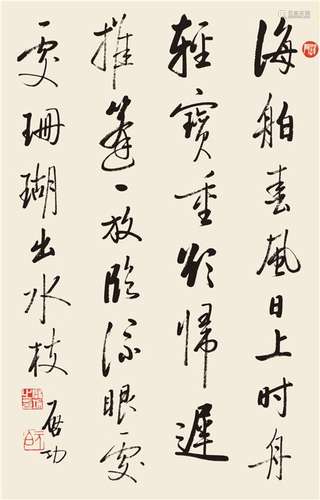 海舶春風日上时舟
輕寶重欲歸遲
推篷一放臨流眼處
處珊瑚出水枝
启功